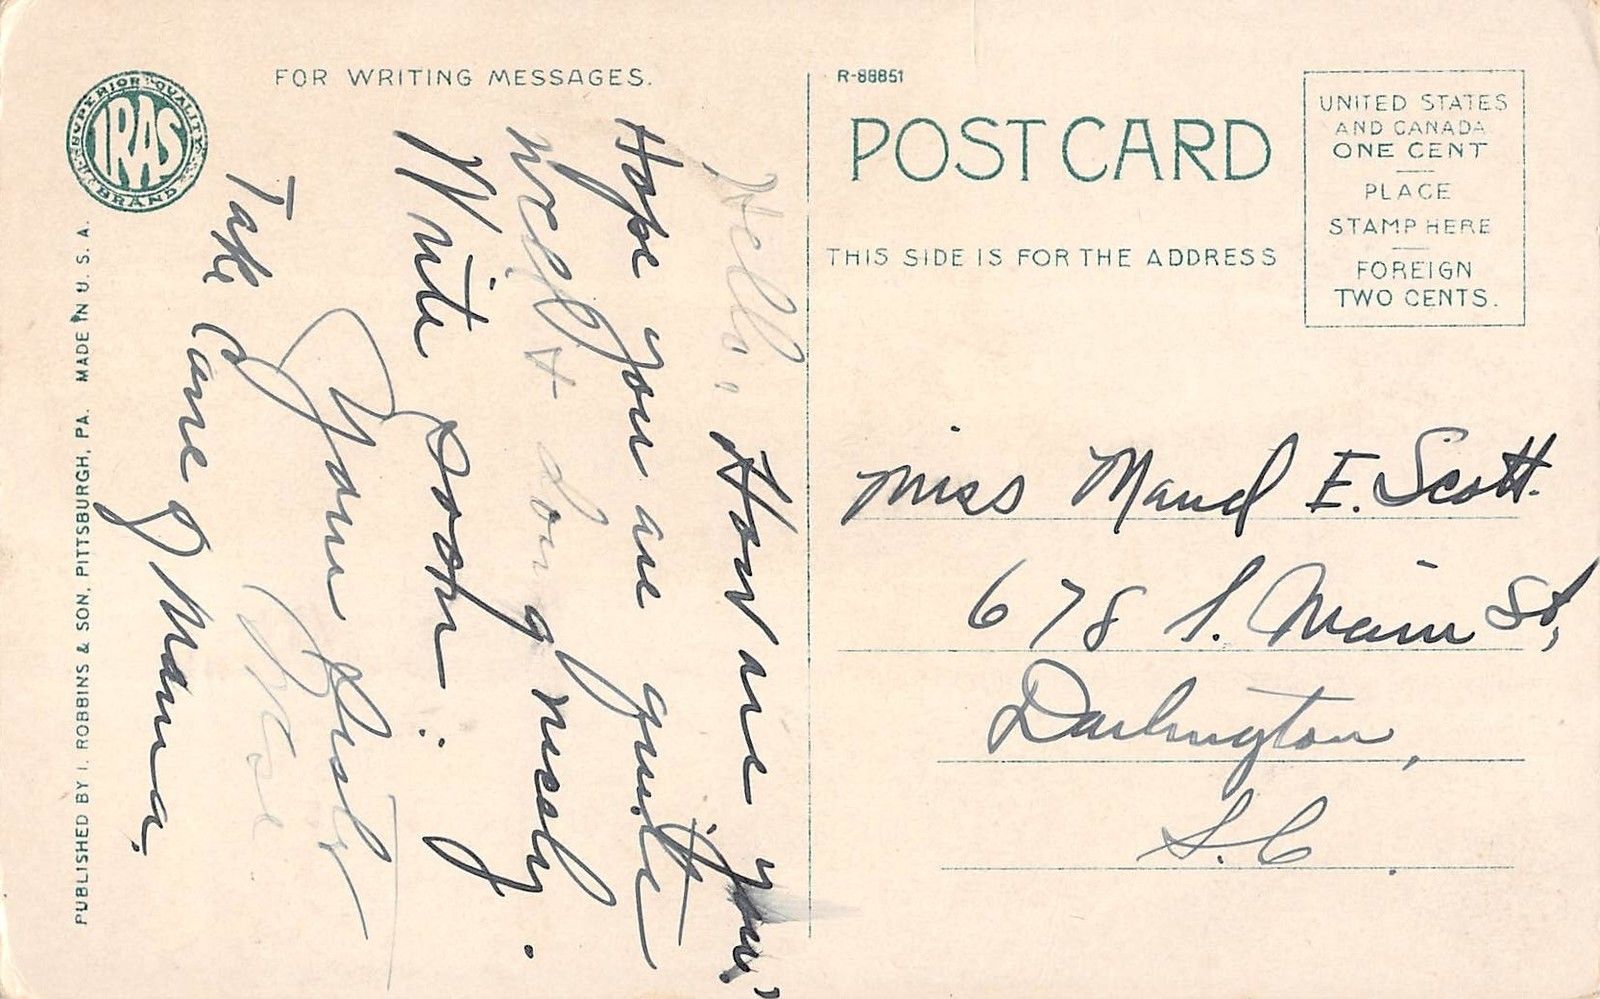 FOR WRITING MESSAGES.
SUPERIOR QUALITY
IRAS
BRAND
PUBLISHED BY I. ROBBINS & SON, PITTSBURGH, PA. MADE IN U.S.A.
Hello, How are you?
Hope you are quite
well + doing nicely.
Write soon.
Your
Take Care of Mama.
R-88851
POST CARD
THIS SIDE IS FOR THE ADDRESS
UNITED STATES
AND CANADA
ONE CENT
PLACE
STAMP HERE
FOREIGN
TWO CENTS.
Miss Maud E. Scott.
678 S. Main St,
Darlington,
S.C.